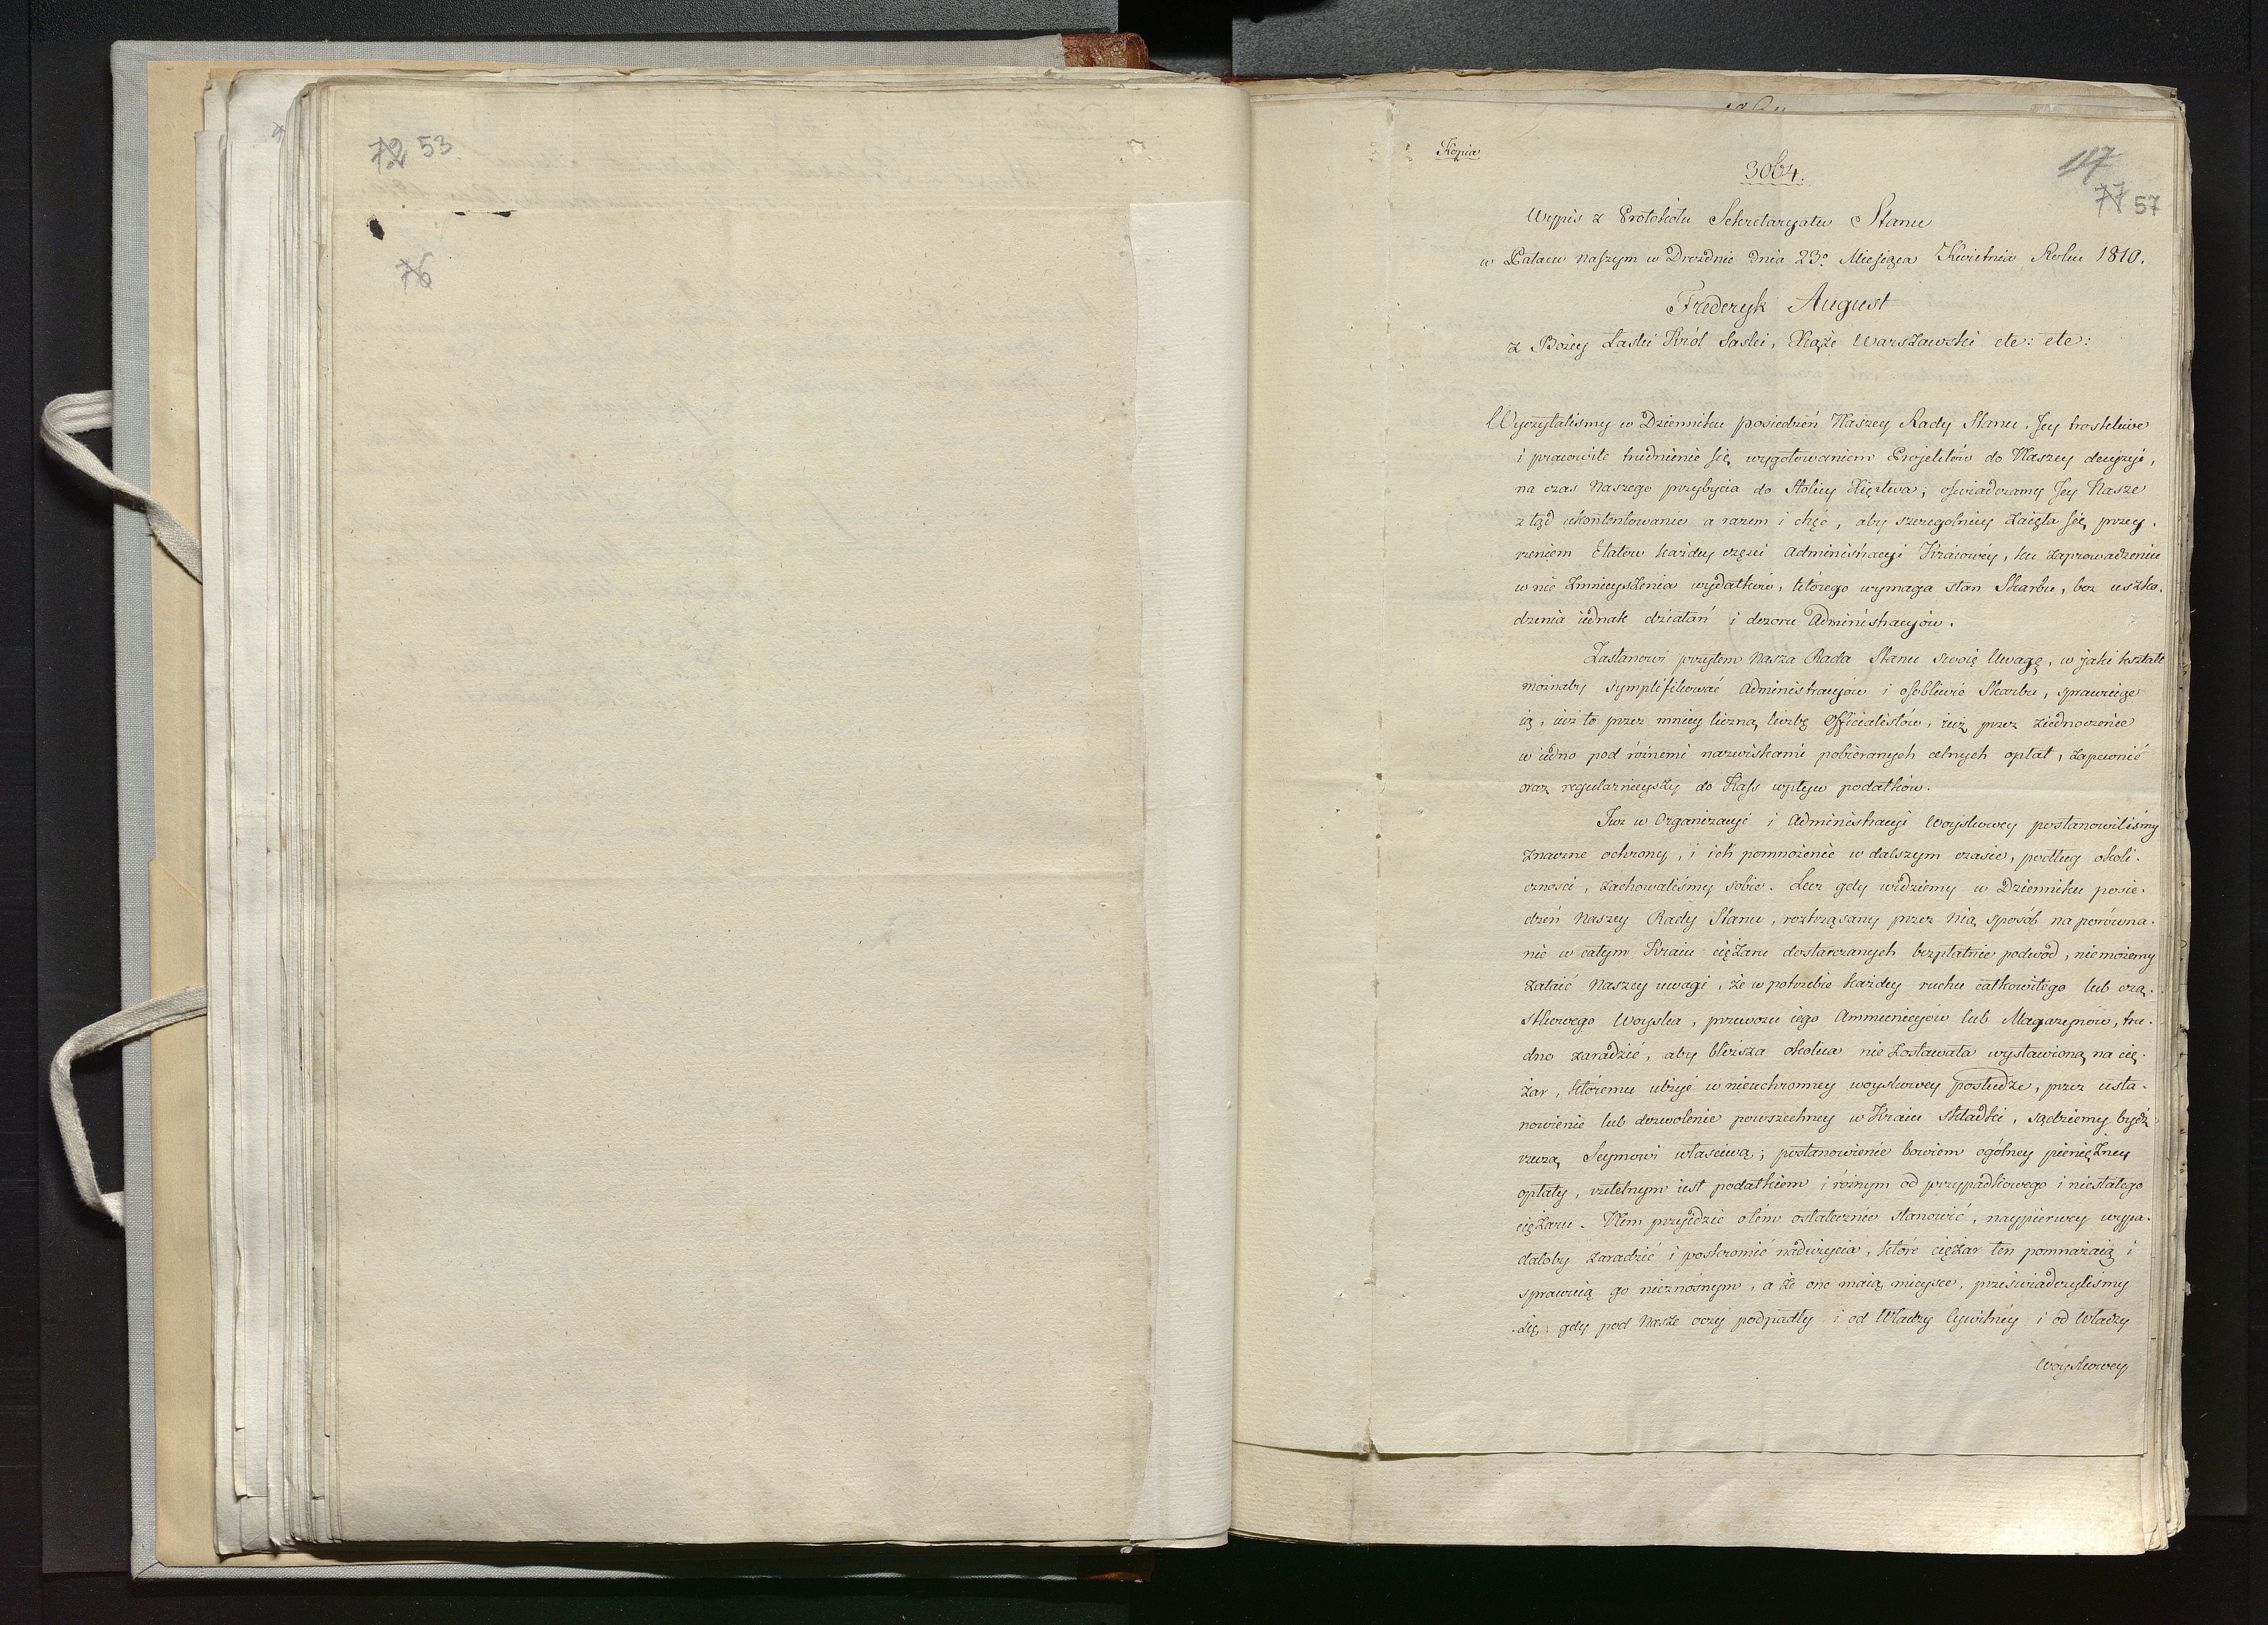 72 53
76
Kopia
3064.
117
77 57
Wypis z Protokółu Sekretaryatu Stanu
w Pałacu naszym w Dreźdnie dnia 23º Miesiąca Kwietnia Roku 1810.
Frederyk August
z Bożey Łaski Król Saski, Xiąże Warszawski etc: etc:
Wyczytaliśmy w Dzienniku posiedzeń Naszey Rady Stanu, Jey troskliwe
i pracowite trudnienie się wygotowaniem Projektów do Naszey decyzyi,
na czas Naszego przybycia do Stolicy Xięztwa; oświadczamy Jey Nasze
z tąd ukontentowanie a razem i chęć, aby szczegolniey zaięła się przey-
rzeniem Etatow każdey części Administracyi Kraiowéy, ku zaprowadzeniu
w nie zmnieyszenia wydatków, którego wymaga stan Skarbu, bez uszko-
dzenia iednak działań i dozoru Administracyów.
Zastanowi przytem Nasza Rada Stanu swoię Uwagę, w jaki kształt
możnaby symplifikować Administracyów i osobliwie Skarbu, sprawuiąc
ią, iuż to przez mniey liczną liczbę Officialistów, iuż przez ziednoczenie
w iedno pod róznemi nazwiskami pobieranych celnych opłat, zapewnić
oraz regularnieyszy do Kass wpływ podatków.
Juz w Organizacyi i Administracyi Woyskowey postanowiliśmy
znaczne ochrony, i ich pomnożenie w dalszym czasie, podług okoli-
czności, zachowaliśmy sobie. Lecz gdy widziemy w Dzienniku posie-
dzeń Naszey Rady Stanu, roztrząsany przez Nią sposób na porówna-
nie w całym Kraiu ciężaru dostarczanych bezpłatnie podwod, niemożemy
zataić Naszey uwagi, że w potrzebie każdey ruchu całkowitego lub czą-
stkowego Woyska, przewozu iego Ammunicyów lub Magazynow, tru-
dno zaradzić, aby bliższa okolica nie zostawała wystawioną na cię-
żar, któremu ulżyć w nieuchronney woyskowey posłudze, przez usta-
nowienie lub dozwolenie powszechney w Kraiu składki, sądziemy bydź
rzeczą Seymowi właściwą; postanowienie bowiem ogólney pieniężney
opłaty, rzetelnym iest podatkiem i róznym od przypadkowego i niestałego
ciężaru. Nim przyidzie o tém ostatecznie stanowić, naypierwey wypa-
dałoby zaradzić i poskromić nadużycia, które ciężar ten pomnażaią i
sprawuią go nieznośnym, a że one maią mieysce, przeświadczyliśmy
się, gdy pod Nasze oczy podpadły i od Władzy Cywilnéy i od Władzy
Woyskowey